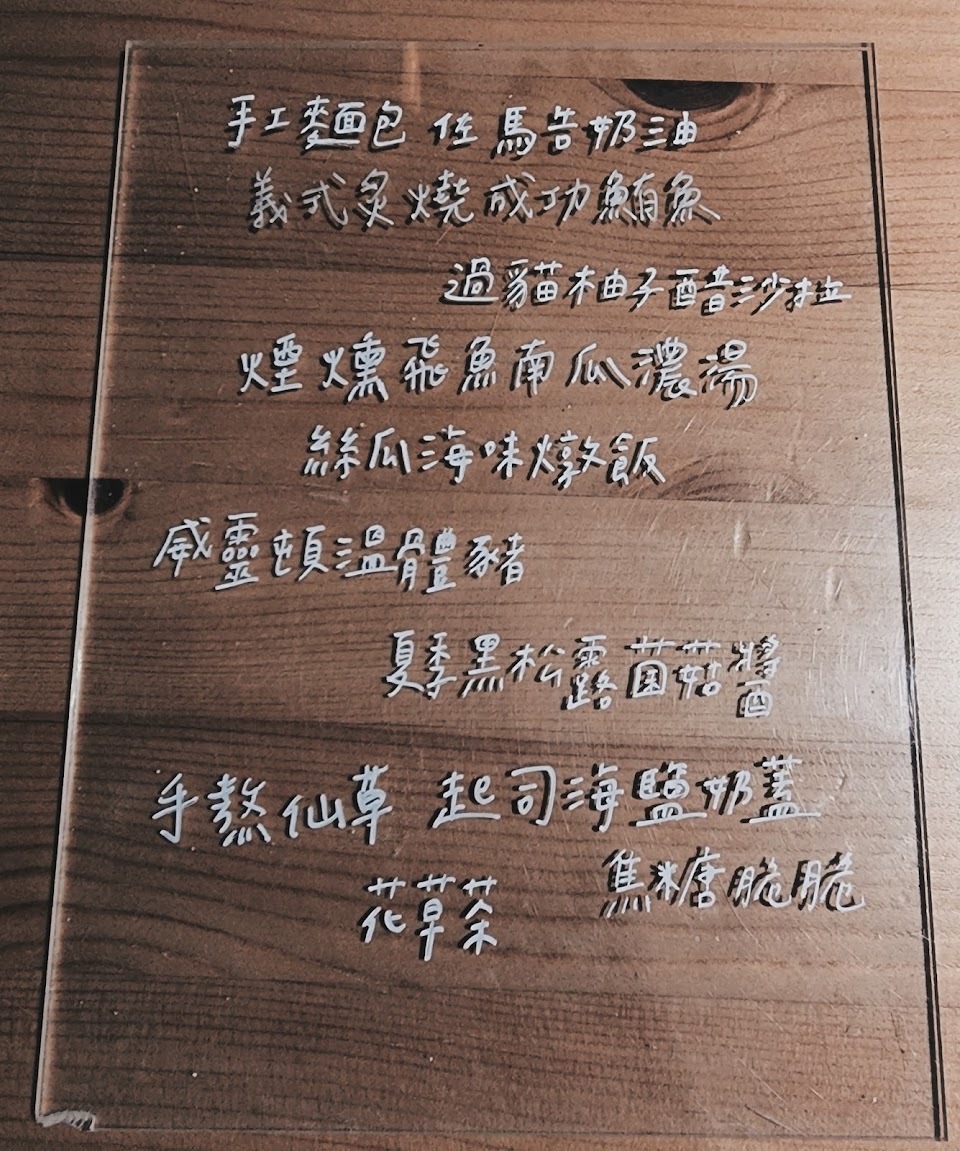 手工麵包 佐 馬告奶油
義式炙燒成功鮪魚
過貓柚子醋沙拉
煙燻飛魚南瓜濃湯
絲瓜海味燉飯
威靈頓溫體豬
夏季黑松露菌菇醬
手熬仙草 起司海鹽奶蓋
焦糖脆脆
花草茶